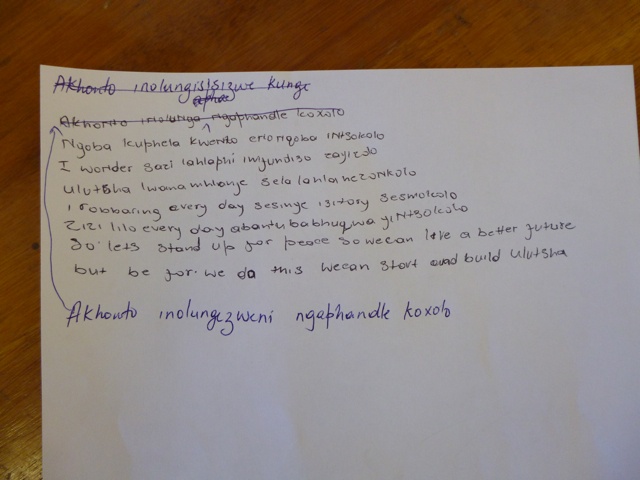 Akhonto inolungisisizwe kunga
aphae
Akhonto inolunga ngaphandle koxolo
Ngoba kuphela kwento enonqoba iNtsokolo
I wonder sazi lahlaphi imfundiso zayizolo
ulutsha lwanamhlanje selalahlanezonkolo
irobbaring every day sesinye isitory sesmokolo
Zizi lilo every day abantu babhuqwa yiNtsokolo
So' lets stand up for peace so we can live a better future
but be for we do this we can start and build ulutsha
Akhonto inolungezweni ngaphandle koxolo